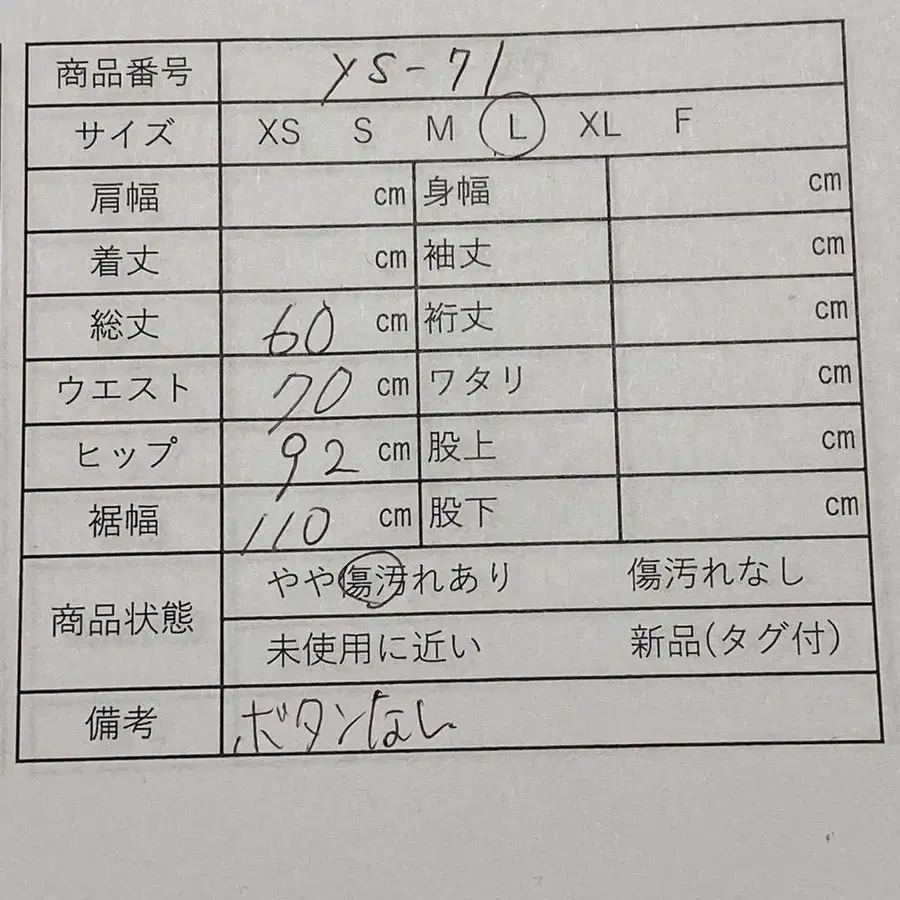 商品番号 YS-71
サイズ XS S M L XL F
肩幅 cm 身幅 cm
着丈 cm 袖丈 cm
総丈 60 cm 裄丈 cm
ウエスト 70 cm ワタリ cm
ヒップ 92 cm 股上 cm
裾幅 110 cm 股下 cm
商品状態 やや傷汚れあり 傷汚れなし
未使用に近い 新品(タグ付)
備考 ボタンなし